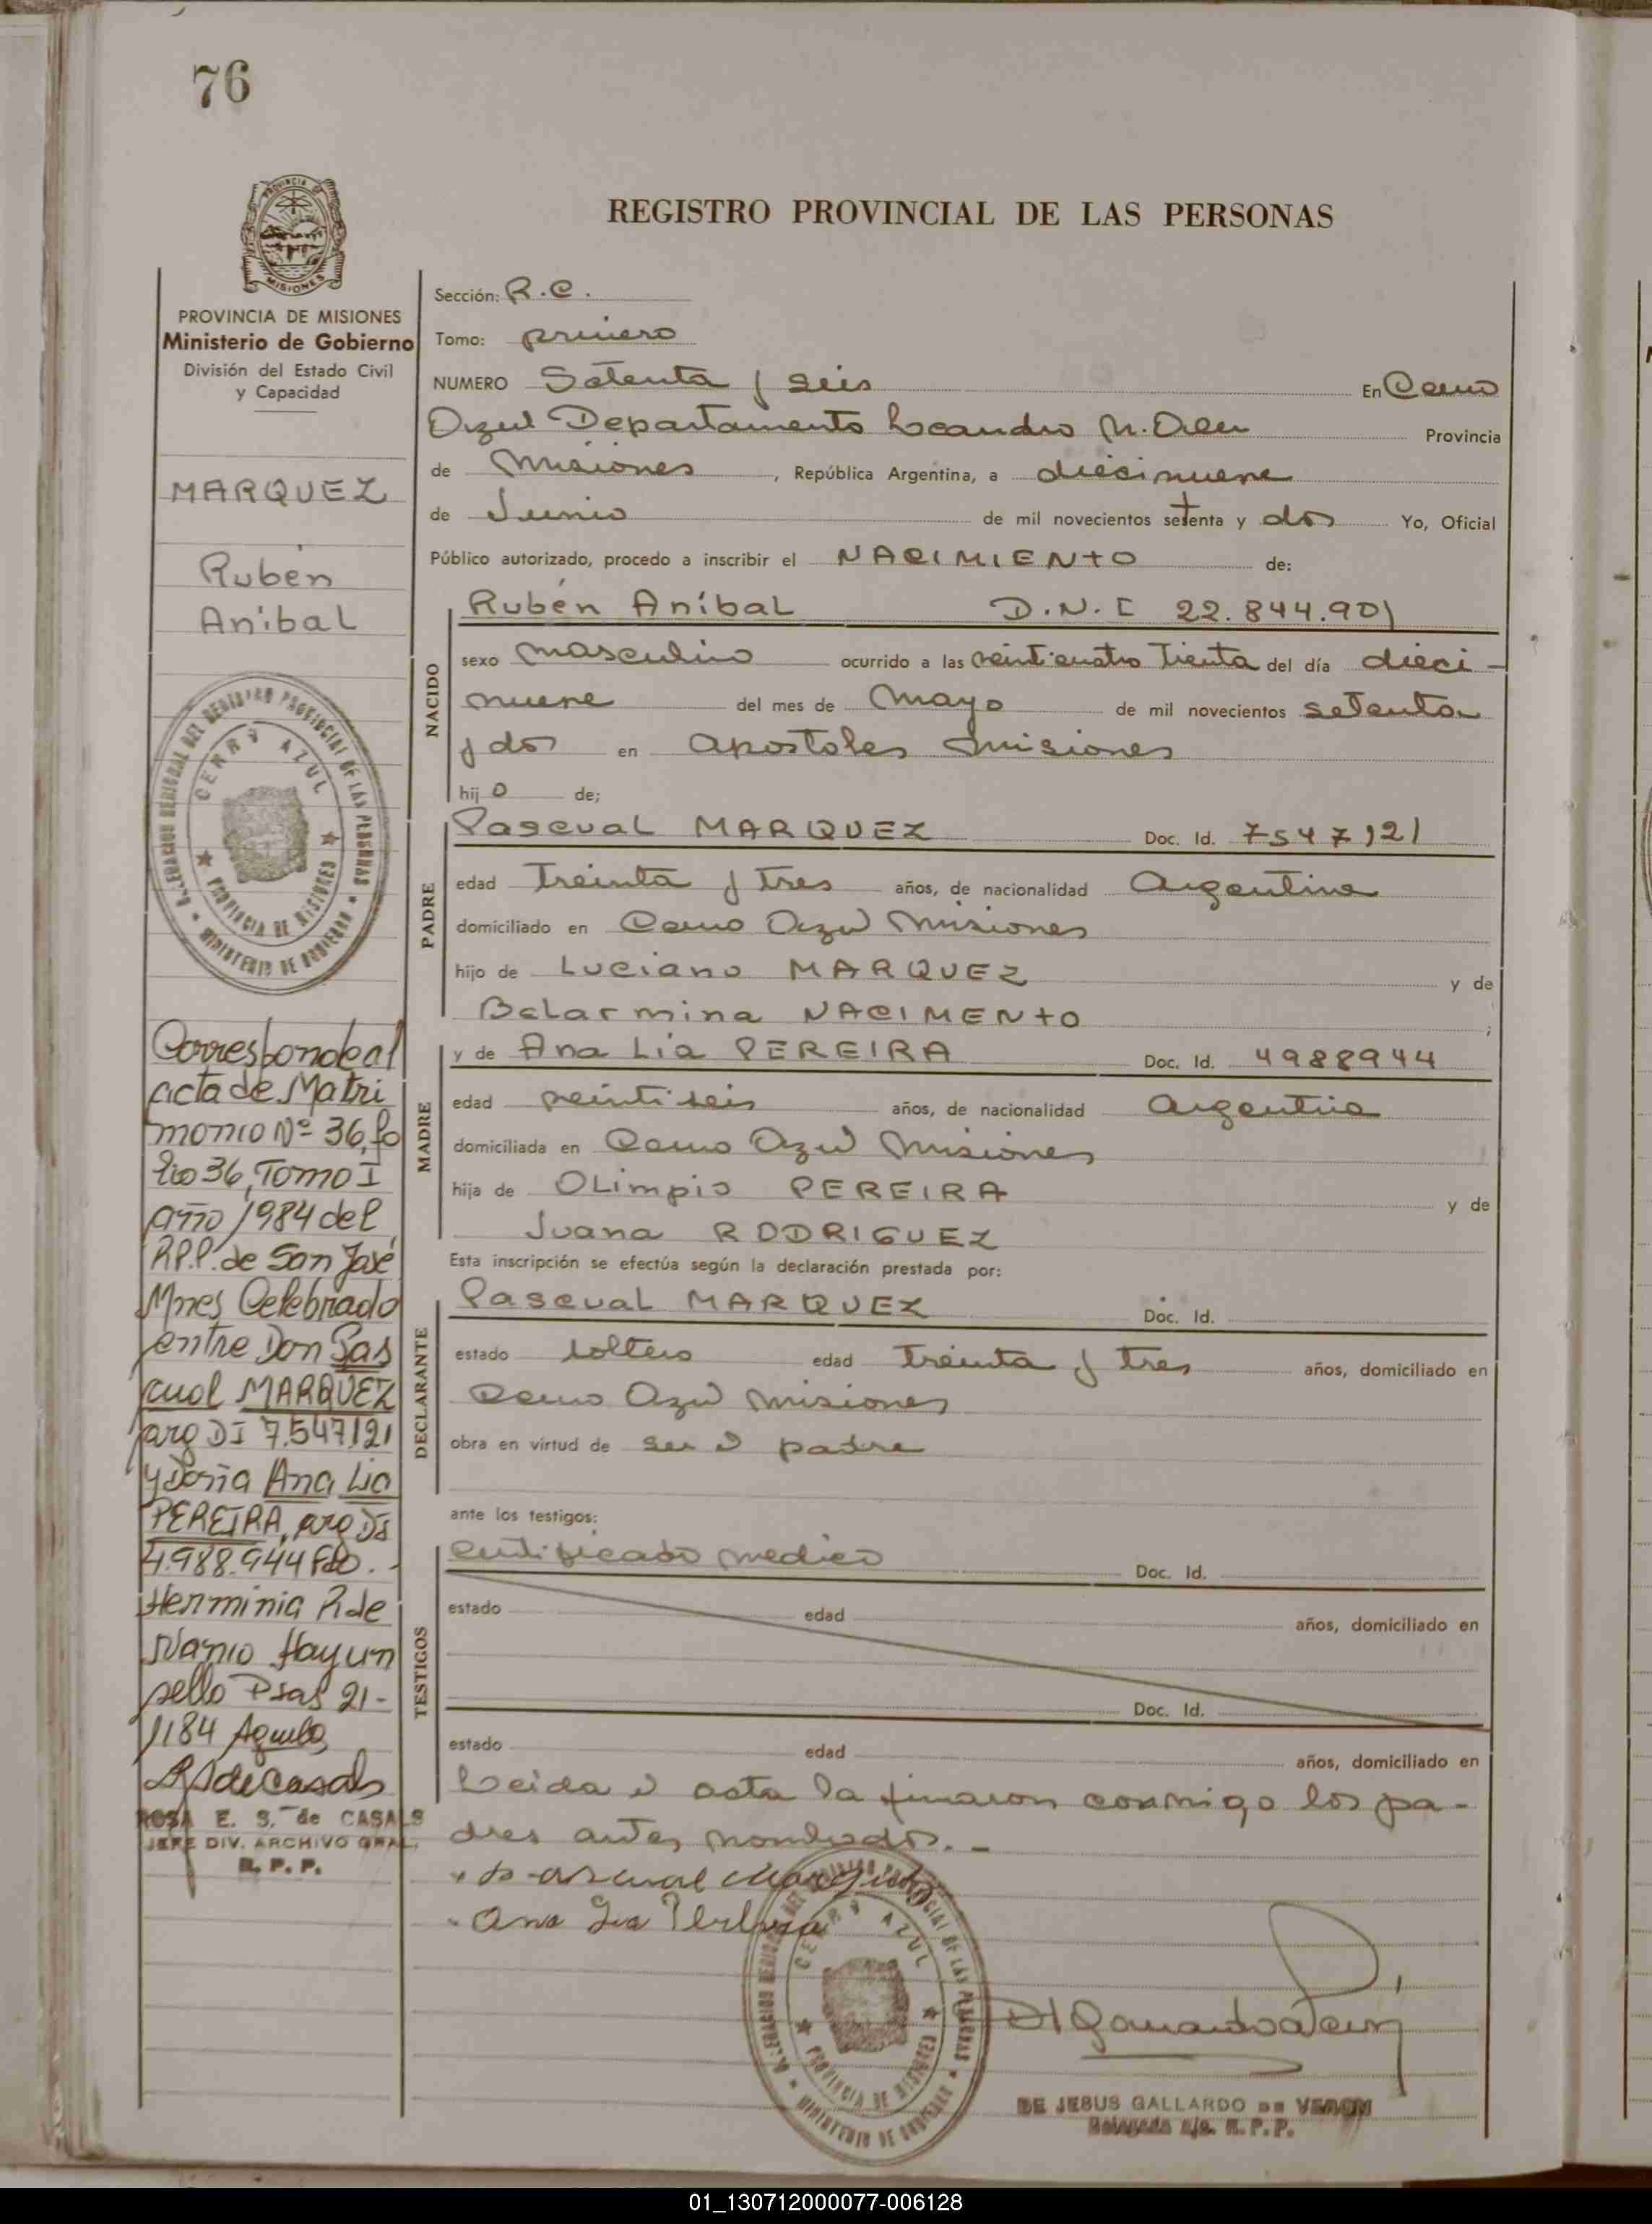 76
PROVINCIA DE MISIONES
Ministerio de Gobierno
División del Estado Civil
y Capacidad
MARQUEZ
Rubén
Aníbal
DELEGACION REGIONAL DEL REGISTRO PROVINCIAL DE LAS PERSONAS
CERRO AZUL
PROVINCIA DE MISIONES
MINISTERIO DE GOBIERNO
Corresponde al
acta de Matri
monio Nº 36, fo
lio 36, Tomo I
año 1984 del
R.P.P. de San José
Mnes Celebrado
entre Don Pas
cual MARQUEZ
arg DI 7.547121
y Doña Ana Lia
PEREIRA, arg DI
4.988.944 Fdo.
Herminia P. de
Hay un
sello Psas 21-
1184
ROSA E. S. de CASALS
JEFE DIV. ARCHIVO GRAL.
R. P. P.
REGISTRO PROVINCIAL DE LAS PERSONAS
Sección: R.C.
Tomo: primero
NUMERO Setenta y seis En Cerro
Azul Departamento Leandro N. Alem Provincia
de Misiones, República Argentina, a diecinueve
de Junio de mil novecientos setenta y dos Yo, Oficial
Público autorizado, procedo a inscribir el NACIMIENTO de:
NACIDO
Rubén Aníbal D.N.I 22.844.901
sexo masculino ocurrido a las veinticuatro treinta del día dieci-
nueve del mes de mayo de mil novecientos setenta
y dos en Apostoles Misiones
hijo de;
PADRE
Pascual MARQUEZ Doc. Id. 7547121
edad Treinta y tres años, de nacionalidad Argentina
domiciliado en Cerro Azul Misiones
hijo de Luciano MARQUEZ y de
Belarmina NACIMENTO ;
MADRE
y de Ana Lía PEREIRA Doc. Id. 4988944
edad veintiseis años, de nacionalidad Argentina
domiciliada en Cerro Azul Misiones
hija de Olimpio PEREIRA y de
Juana RODRIGUEZ
Esta inscripción se efectúa según la declaración prestada por:
DECLARANTE
Pascual MARQUEZ Doc. Id.
estado soltero edad Treinta y tres años, domiciliado en
Cerro Azul Misiones
obra en virtud de ser el padre
ante los testigos:
TESTIGOS
certificado medico Doc. Id.
estado edad años, domiciliado en
Doc. Id.
estado edad años, domiciliado en
Leida el acta la firmaron conmigo los pa-
dres antes nombrados.-
Pascual Marquez
Ana Lia Pereira
DELEGACION REGIONAL DEL REGISTRO PROVINCIAL DE LAS PERSONAS
CERRO AZUL
PROVINCIA DE MISIONES
MINISTERIO DE GOBIERNO
DE JESUS GALLARDO DE VERON
Delegada R.P.P.
01_130712000077-006128